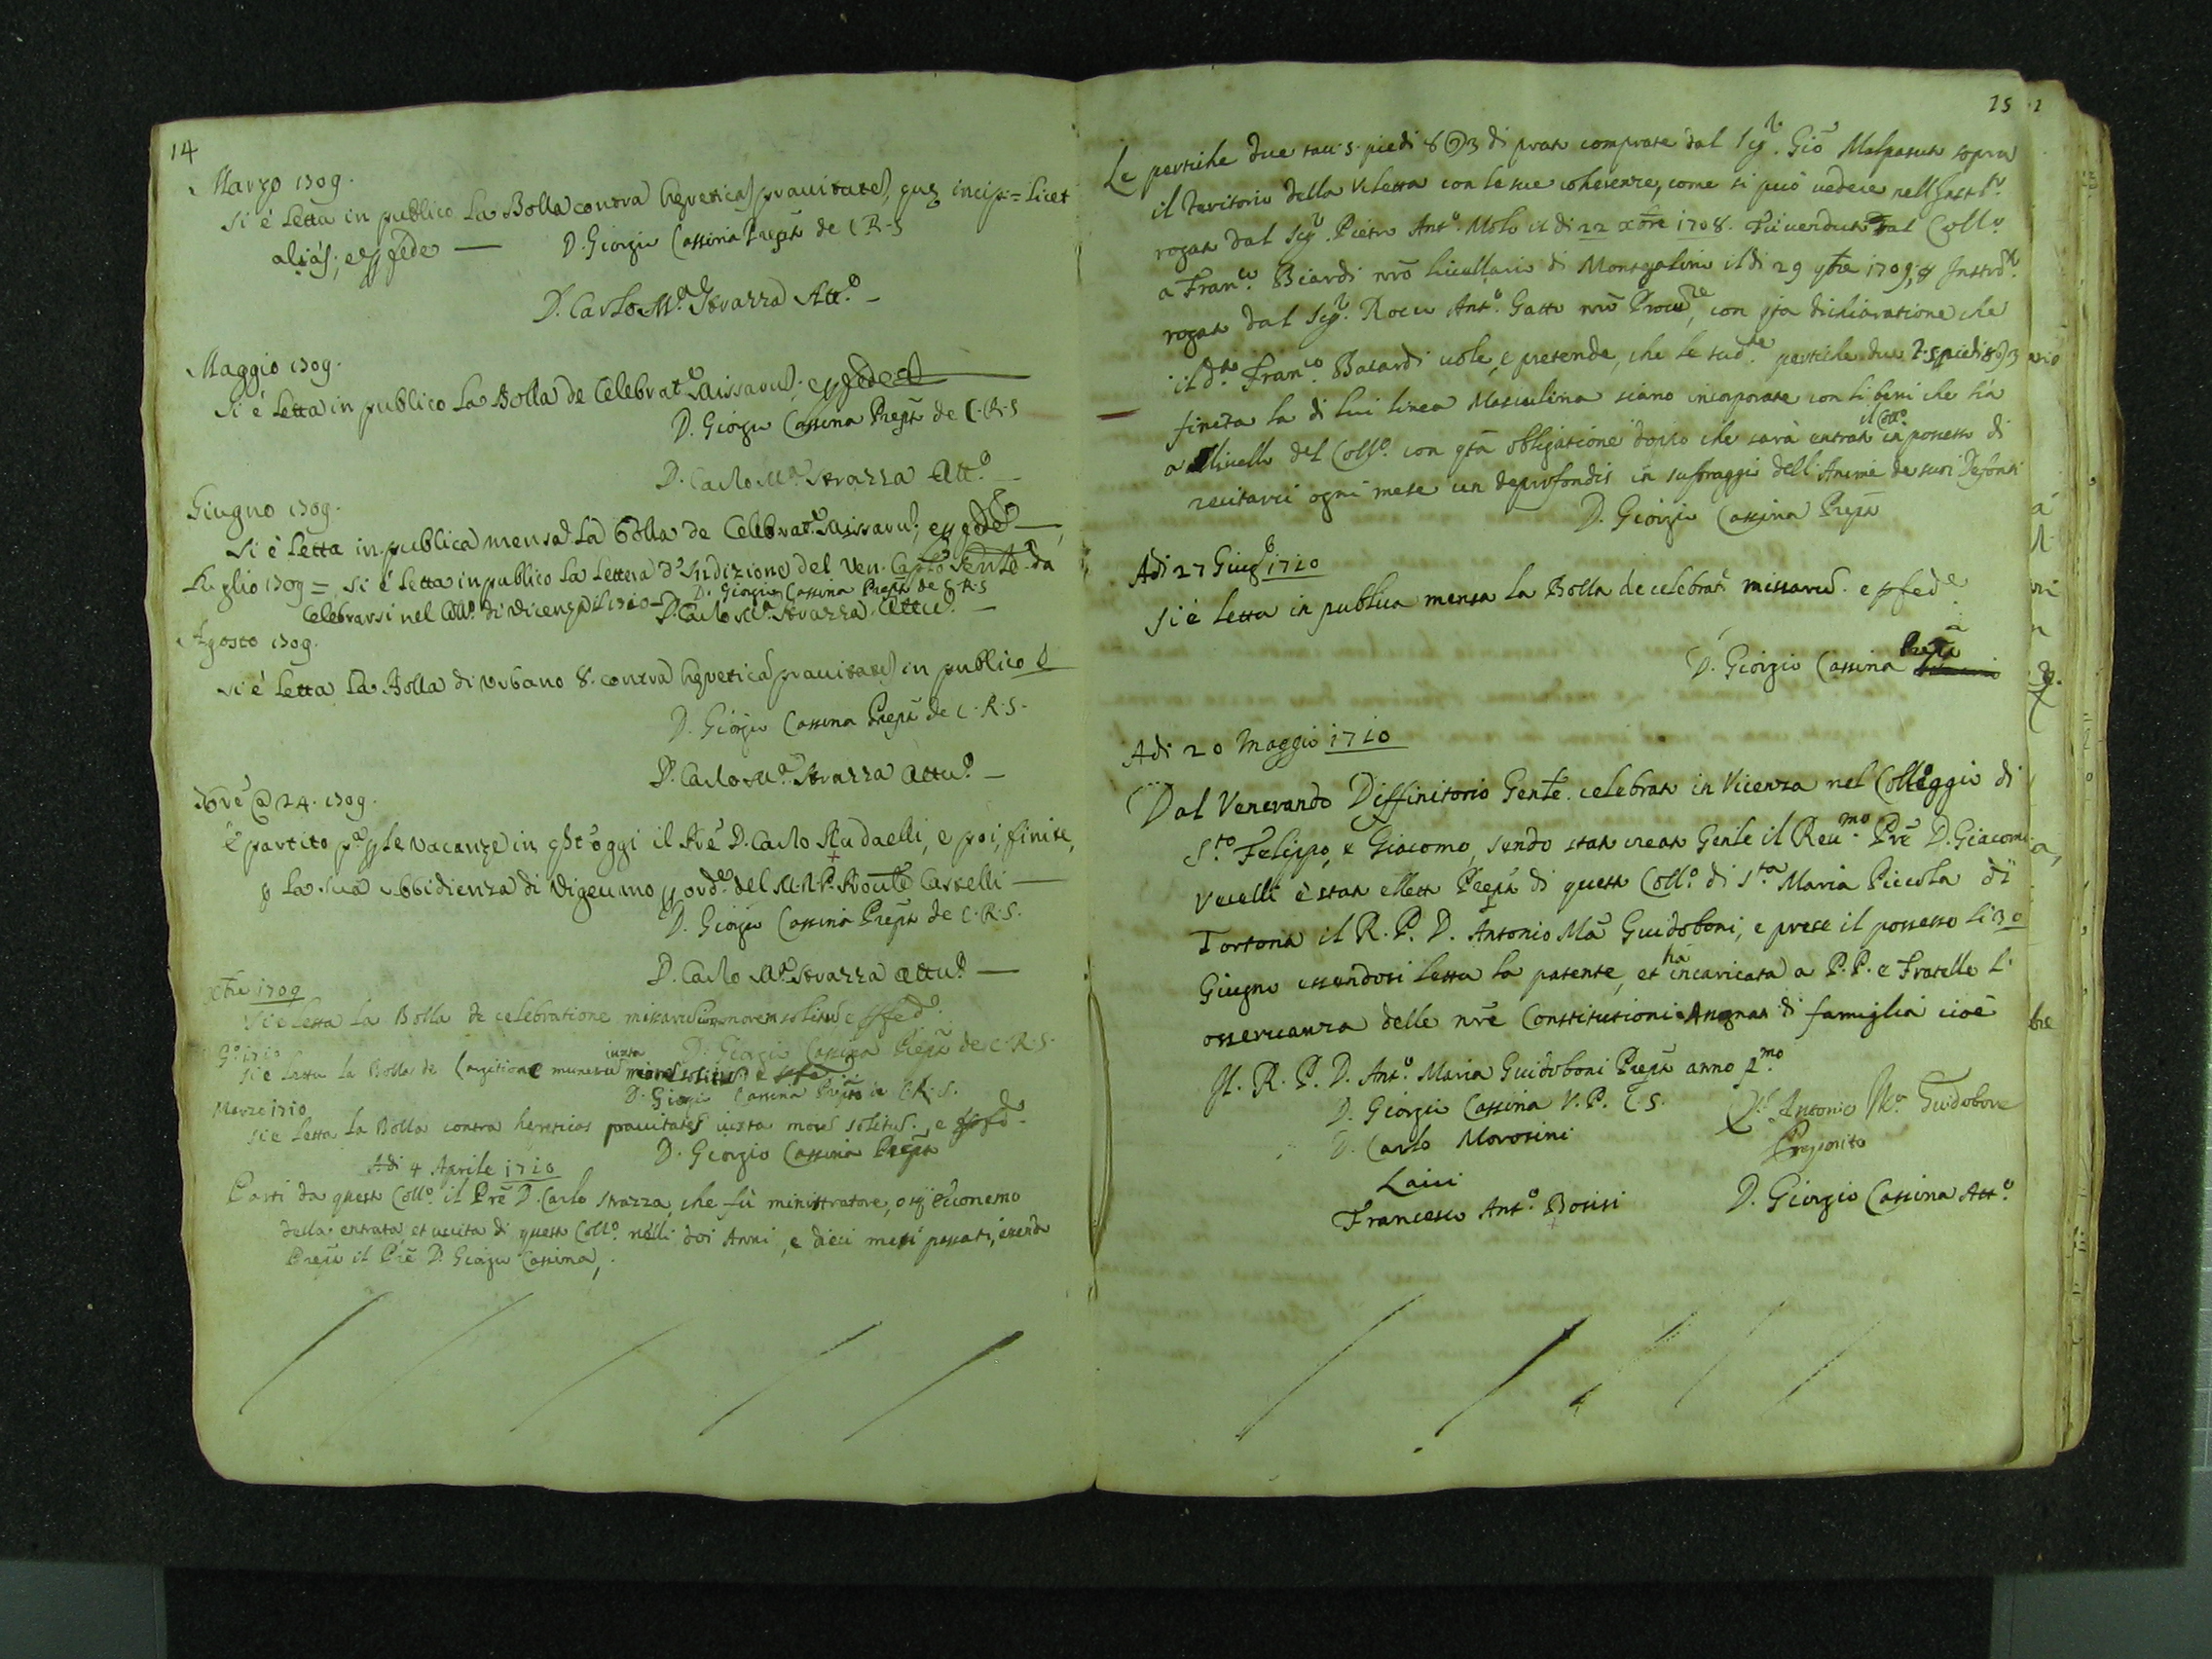 14
Marzo 1709.
Si é Letta in publico La Bolla contra hęretica pravitate, quę incip = licet
aliás; e p fede — D. Giorgio Cassina Prepto de C R S
D. Carlo Ma. Strazza Att.o
Maggio 1709.
Si é Letta in publico La Bolla de Celebrat.e Missarum; e p fede
D. Giorgio Cassina Prepto de C.R.S
D. Carlo Ma. Strazza Att.o
Giugno 1709.
Si é Letta in publica mensa La Bolla de Celebrat.e Missaru; e p fede
Luglio 1709 = Si é Letta in publico La Lettera d'Indizione del Ven. Caplo Genle da
D. Giorgio Cassina Prepto de C.R.S
Celebrarsi nel Collo. di Vicenza il 1710 = D. Carlo Ma. Strazza Attu.o
Agosto 1709.
Si é Letta La Bolla di Urbano 8. contra hęretica pravitate in publico
D. Giorgio Cassina Prepto de C.R.S.
D. Carlo Ma. Strazza Attu.o
24. 1709.
É partito p le vacanze in oggi il Pre D. Carlo Rudaelli, e poi, finite,
p La sua obbidienza di Vigeuano p ord.e del M.R.P. Castelli
D. Giorgio Cassina Prepto de C.R.S.
D. Carlo Ma. Strazza Attu.o
Xbre 1709
Si é Letta La Bolla de celebratione missaru morem solitu e p fed.e
D. Giorgio Cassina Prepto de C.R.S.
G.o 1710
Si é Letta La Bolla de Largitione muneru iuxta more solitu e
D. Giorgio Cassina Prepto de C.R.S.
Marzo 1710
Si é Letta La Bolla contra hereticas pravitates iuxta more solitu. e p fed.e
D. Giorgio Cassina Prepto
Adi 4 Aprile 1710
Parti da questo Coll.o il Pre D. Carlo Strazza, che fù ministratore, o sij Economo
della entrata, et uscita di questo Coll.o nelli doi Anni, e dieci mesi passati, essendo
Prepto il Pre D. Giorgio Cassina,
15
Le pertiche due tau. 5. piedi 8 3 di prato comprate dal Sigr. Gio Malpassuto sopra
il Teritorio della Viletta con le sue coherenze, come si può vedere nell Instto.
rogato dal Sigr. Pietro Anto. Molo il di 22 Xbre 1708. Fù venduto dal Collo.
a Franco. Biardi nro livellario di Montegaldino il di 29 9bre 1709, p Instrto.
rogato dal Sigr. Rocco Anto. Gatti nro Procure, con qta dichiaratione che
il do. Franco. Bacardi vole, e pretende, che le sudte. pertiche due t. 5 piedi 8 3
finita la di lui linea Masculina siano incorporate con li beni che hà
a livello del Collo. con qta obligatione doppo che sarà entrato il Collo. in possesso di
recitarci ogni mese un deprofondis in suffraggio dell'Anime de suoi Defonti
D. Giorgio Cassina Prepto
Adi 27 Giugo 1710
Si è letta in publica mensa la Bolla de celebrate missaru. e p fede
D. Giorgio Cassina Prepto
Adi 20 Maggio 1710
Dal Venerando Diffinitorio Genle. celebrato in Vicenza nel Colleggio di
S.to Felippo, e Giacomo, sendo stato creato Genle il Reumo. Pre D. Giacomo
Vecelli è stato elletto Prepto di questo Collo. di Sta Maria Piccola di
Tortona il R. P. D. Antonio Ma Guidoboni, e prese il possesso li 30
Giugno essendosi letta la patente, et hà incaricata a P.P. e Fratello l'
osservanza delle nre Constitutioni di famiglia cioè
Il. R. P. D. Anto. Maria Guidoboni Prepto anno pmo.
D. Giorgio Cassina V.P. C.S.
D. Carlo Morosini
D. Antonio Ma Guidobone
Preposito
Laici
Francesco Anto. Bosisi
D. Giorgio Cassina Atto.